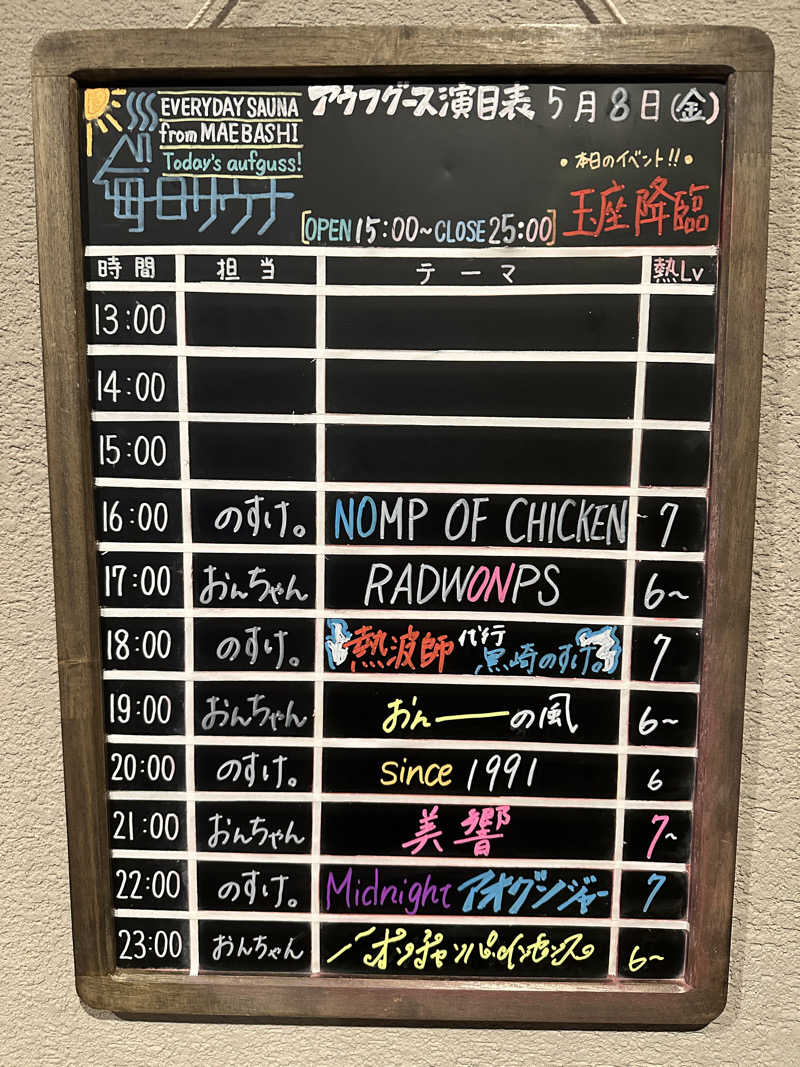 EVERYDAY SAUNA
from MAEBASHI
Today's aufguss!
毎日サウナ
アウフグース演目表 5月8日(金)
•本日のイベント!!•
玉座降臨
[OPEN 15:00~CLOSE 25:00]
時間 担当 テーマ 熱Lv
13:00
14:00
15:00
16:00 のすけ。 NOMP OF CHICKEN 7
17:00 おんちゃん RADWONPS 6~
18:00 のすけ。 熱波師代行 黒崎のすけ。 7
19:00 おんちゃん おんーの風 6~
20:00 のすけ。 since 1991 6
21:00 おんちゃん 美響 7~
22:00 のすけ。 Midnight アオグンジャー 7
23:00 おんちゃん 6~